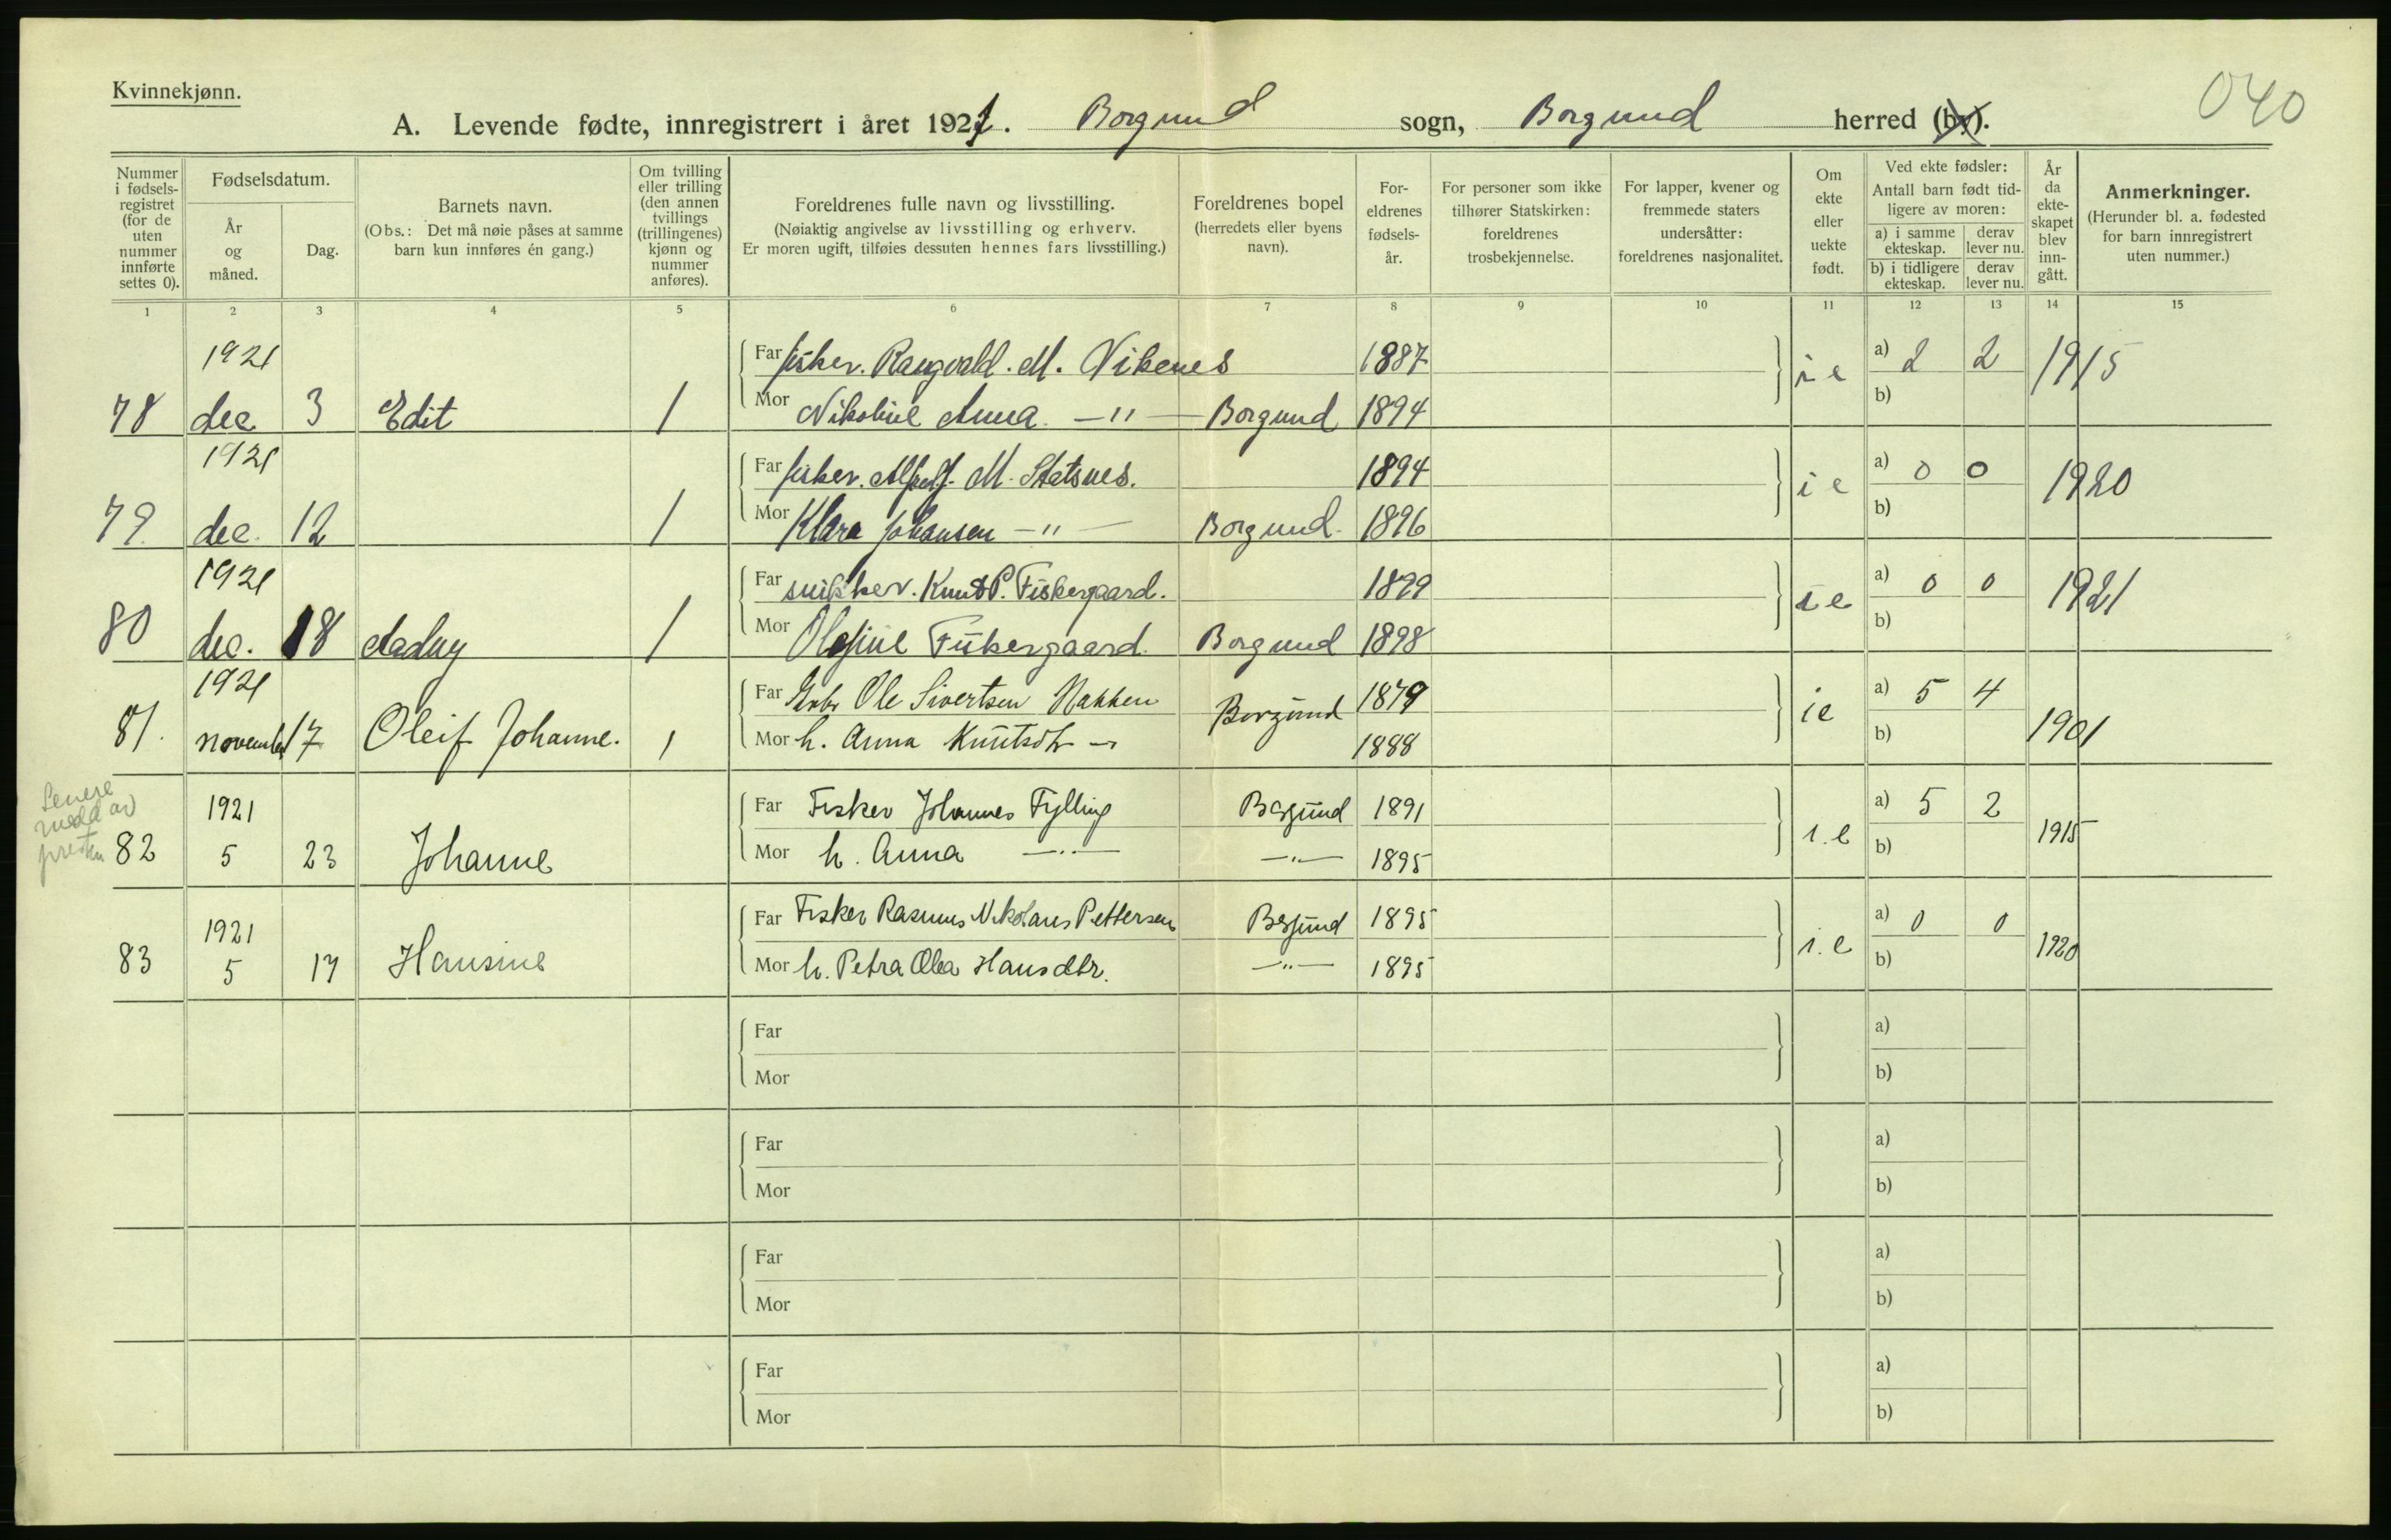 Kvinnekjønn.
040
A. Levende fødte, innregistrert i året 1921. Borgund sogn, Borgund herred (by).
Nummer i fødsels- registret (for de uten nummer innførte settes 0).
Fødselsdatum.
År og måned.
Dag.
Barnets navn.
(Obs.: Det må nøie påses at samme barn kun innføres én gang.)
Om tvilling eller trilling (den annen tvillings (trillingenes) kjønn og nummer anføres).
Foreldrenes fulle navn og livsstilling.
(Nøiaktig angivelse av livsstilling og erhverv.
Er moren ugift, tilføies dessuten hennes fars livsstilling.)
Foreldrenes bopel (herredets eller byens navn).
For- eldrenes fødsels- år.
For personer som ikke tilhører Statskirken: foreldrenes trosbekjennelse.
For lapper, kvener og fremmede staters undersåtter: foreldrenes nasjonalitet.
Om ekte eller uekte født.
Ved ekte fødsler:
Antall barn født tid- ligere av moren:
a) i samme ekteskap. derav lever nu.
b) i tidligere ekteskap. derav lever nu.
År da ekte- skapet blev inn- gått.
Anmerkninger.
(Herunder bl. a. fødested for barn innregistrert uten nummer.)
1 2 3 4 5 6 7 8 9 10 11 12 13 14 15
1921 Far fisker. Rangvald. M. Vikenes 1887 a) 2 2 1915
78 dec 3 Edit / Mor Nikoline Anna —"— Borgund 1894 ie b)
1921 Far fisker. M. Statsnes. 1894 a) 0 0 1920
79 dec. 12 / Mor Klara Johansen —"— Borgund 1896 ie b)
1921 Far snikker. Knut P. Fiskergaard. 1899 a) 0 0 1921
80 dec. 18 Aadny / Mor Olefine Fiskergaard. Borgund 1898 ie b)
1921 Far Gbr Ole Sivertsen Nakken Borgund 1879 a) 5 4
81. november 17 Oleif Johanne. / Mor h. Anna Knutsdtr —"— 1888 ie b) 1901
Senere medd av presten
1921 Far Fisker Johannes Fylling Borgund 1891 a) 5 2
82 5 23 Johanne Mor h. Anna —"— —"— 1895 i.e b) 1915
1921 Far Fisker Rasmus Nikolaus Pettersen Borgund 1895 a) 0 0
83 5 17 Hansine Mor h. Petra Olea Hansdtr. —"— 1895 i.e b) 1920
Far a)
Mor b)
Far a)
Mor b)
Far a)
Mor b)
Far a)
Mor b)